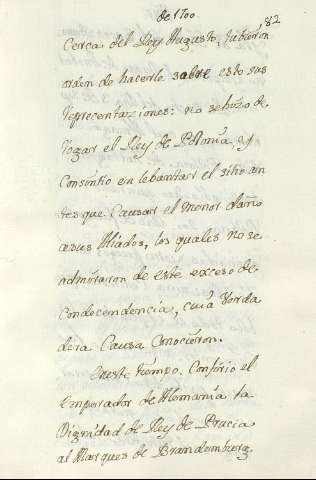 de 1700.
82
cerca del Rey Augusto, tubieron
orden de hacerle sobre esto sus
representaziones: no se hizo de
rogar el Rey de Polonia, y
Consintio en lebantar el sitio an
tes que Causar el menor daño
a sus Aliados, los quales no se
admiraron de este exceso de
Condecendencia, cuia Verda
dera Causa Conocieron.
En este tiempo. Confirio el
Emperador de Alemania la
Dignidad de Rey de Prucia
al Marques de Brandemburg